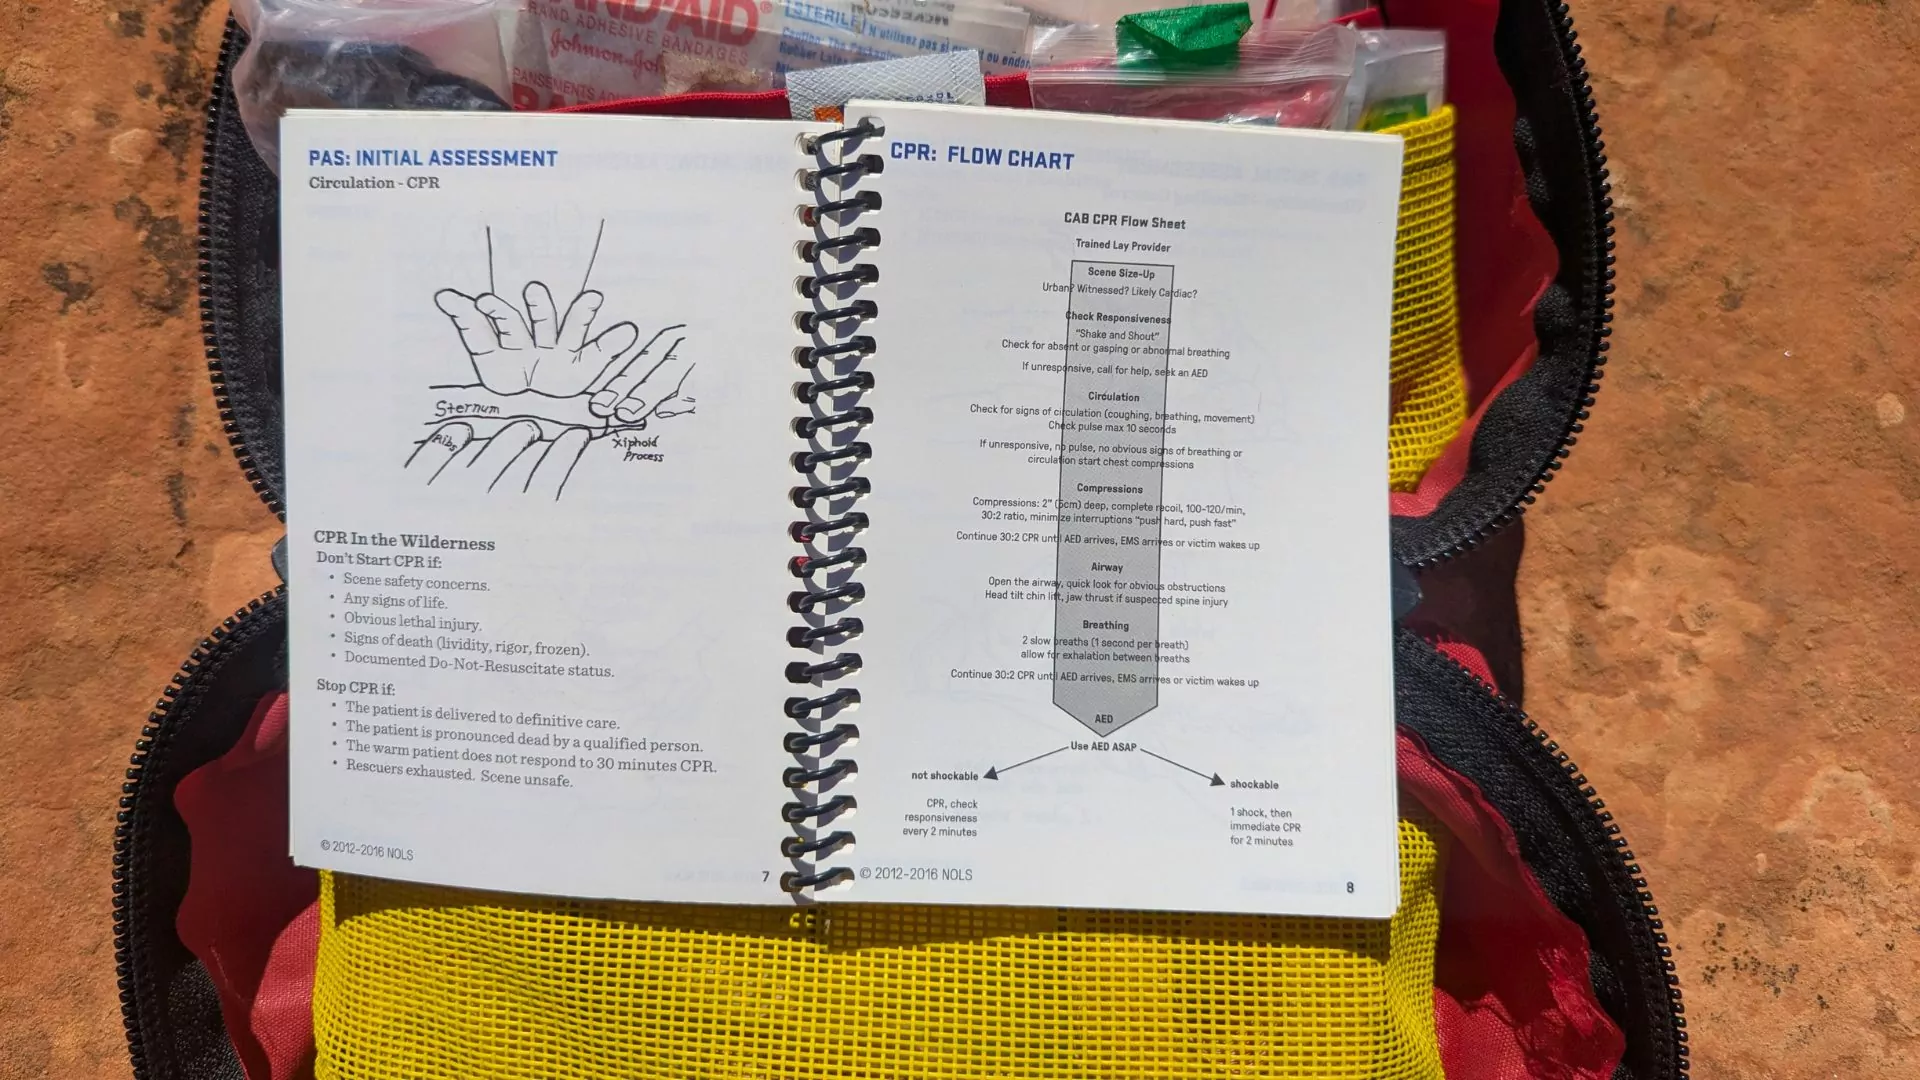 BAND-AID®
BRAND ADHESIVE BANDAGES
Johnson-Joh
PANSEMENTS
STERILE
N'utilisez pas si
ou endom
PAS: INITIAL ASSESSMENT
Circulation - CPR
Sternum
Ribs
Xiphoid
Process
CPR In the Wilderness
Don't Start CPR if:
• Scene safety concerns.
• Any signs of life.
• Obvious lethal injury.
• Signs of death (lividity, rigor, frozen).
• Documented Do-Not-Resuscitate status.
Stop CPR if:
• The patient is delivered to definitive care.
• The patient is pronounced dead by a qualified person.
• The warm patient does not respond to 30 minutes CPR.
• Rescuers exhausted. Scene unsafe.
© 2012-2016 NOLS
7
CPR: FLOW CHART
CAB CPR Flow Sheet
Trained Lay Provider
Scene Size-Up
Urban? Witnessed? Likely Cardiac?
Check Responsiveness
"Shake and Shout"
Check for absent or gasping or abnormal breathing
If unresponsive, call for help, seek an AED
Circulation
Check for signs of circulation (coughing, breathing, movement)
Check pulse max 10 seconds
If unresponsive, no pulse, no obvious signs of breathing or
circulation start chest compressions
Compressions
Compressions: 2" (5cm) deep, complete recoil, 100-120/min,
30:2 ratio, minimize interruptions "push hard, push fast"
Continue 30:2 CPR until AED arrives, EMS arrives or victim wakes up
Airway
Open the airway, quick look for obvious obstructions
Head tilt chin lift, jaw thrust if suspected spine injury
Breathing
2 slow breaths (1 second per breath)
allow for exhalation between breaths
Continue 30:2 CPR until AED arrives, EMS arrives or victim wakes up
AED
Use AED ASAP
not shockable
CPR, check
responsiveness
every 2 minutes
shockable
1 shock, then
immediate CPR
for 2 minutes
© 2012-2016 NOLS
8